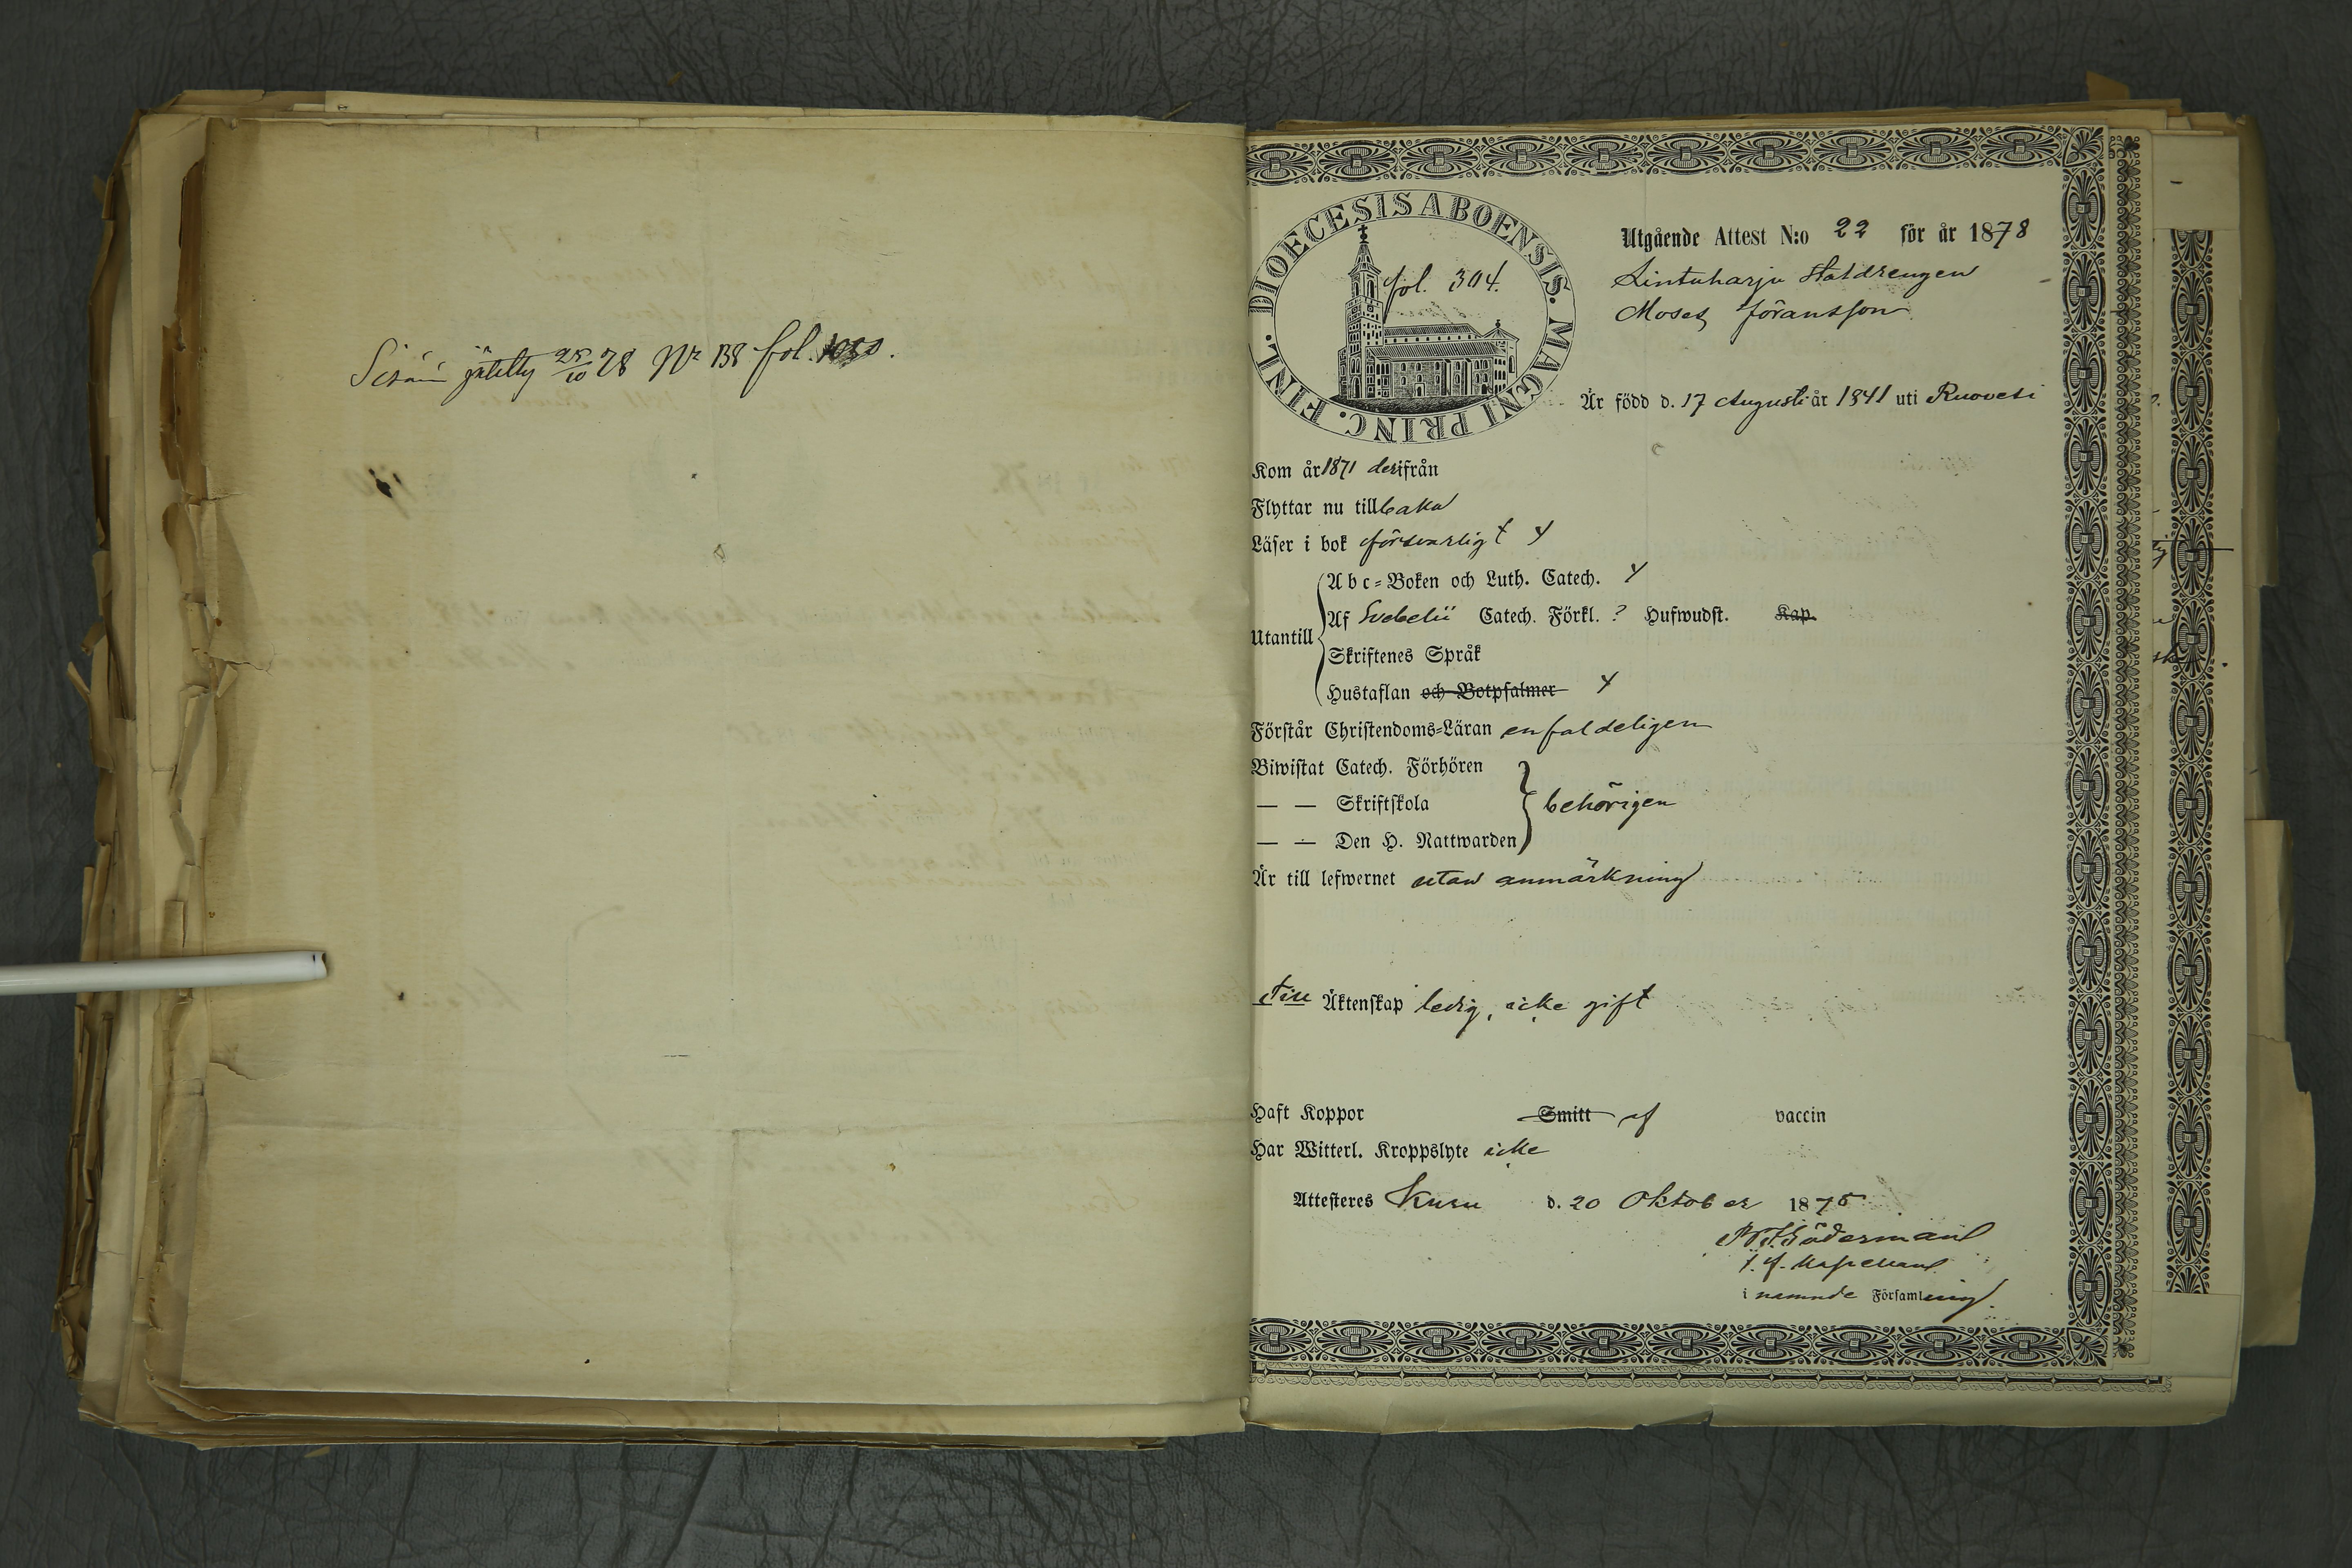 Sisään jätetty 25/10 78 Nr 138 fol. 1080.
DIOECESIS ABOENSIS. MAGNI PRINC. FINL.
fol. 304.
Utgående Attest N:o 22 för år 1878
Lintuharju Staldrengen
Moses Jöransson
Är född d. 17 Augusti år 1841 uti Ruovesi
Kom år 1871 derifrån
Flyttar nu tillbaka
Läser i bok försvarligt y
Utantill
Abc=Boken och Luth. Catech. y
Af Svebelii Catech. Förkl. ? Hufwudst. Kap.
Skriftenes Språk
Hustaflan och Botpsalmer y
Förstår Christendoms=Läran enfaldeligen
Biwistat Catech. Förhören
— — Skriftskola behörigen
— — Den H. Nattwarden
Är till lefwernet utan anmärkning
Till Äktenskap ledig, icke gift
Haft Koppor Smitt af vaccin
Har Witterl. Kroppslyte icke
Attesteres Kuru d. 20 Oktober 1878
Södermanl
i nämnde Församling.